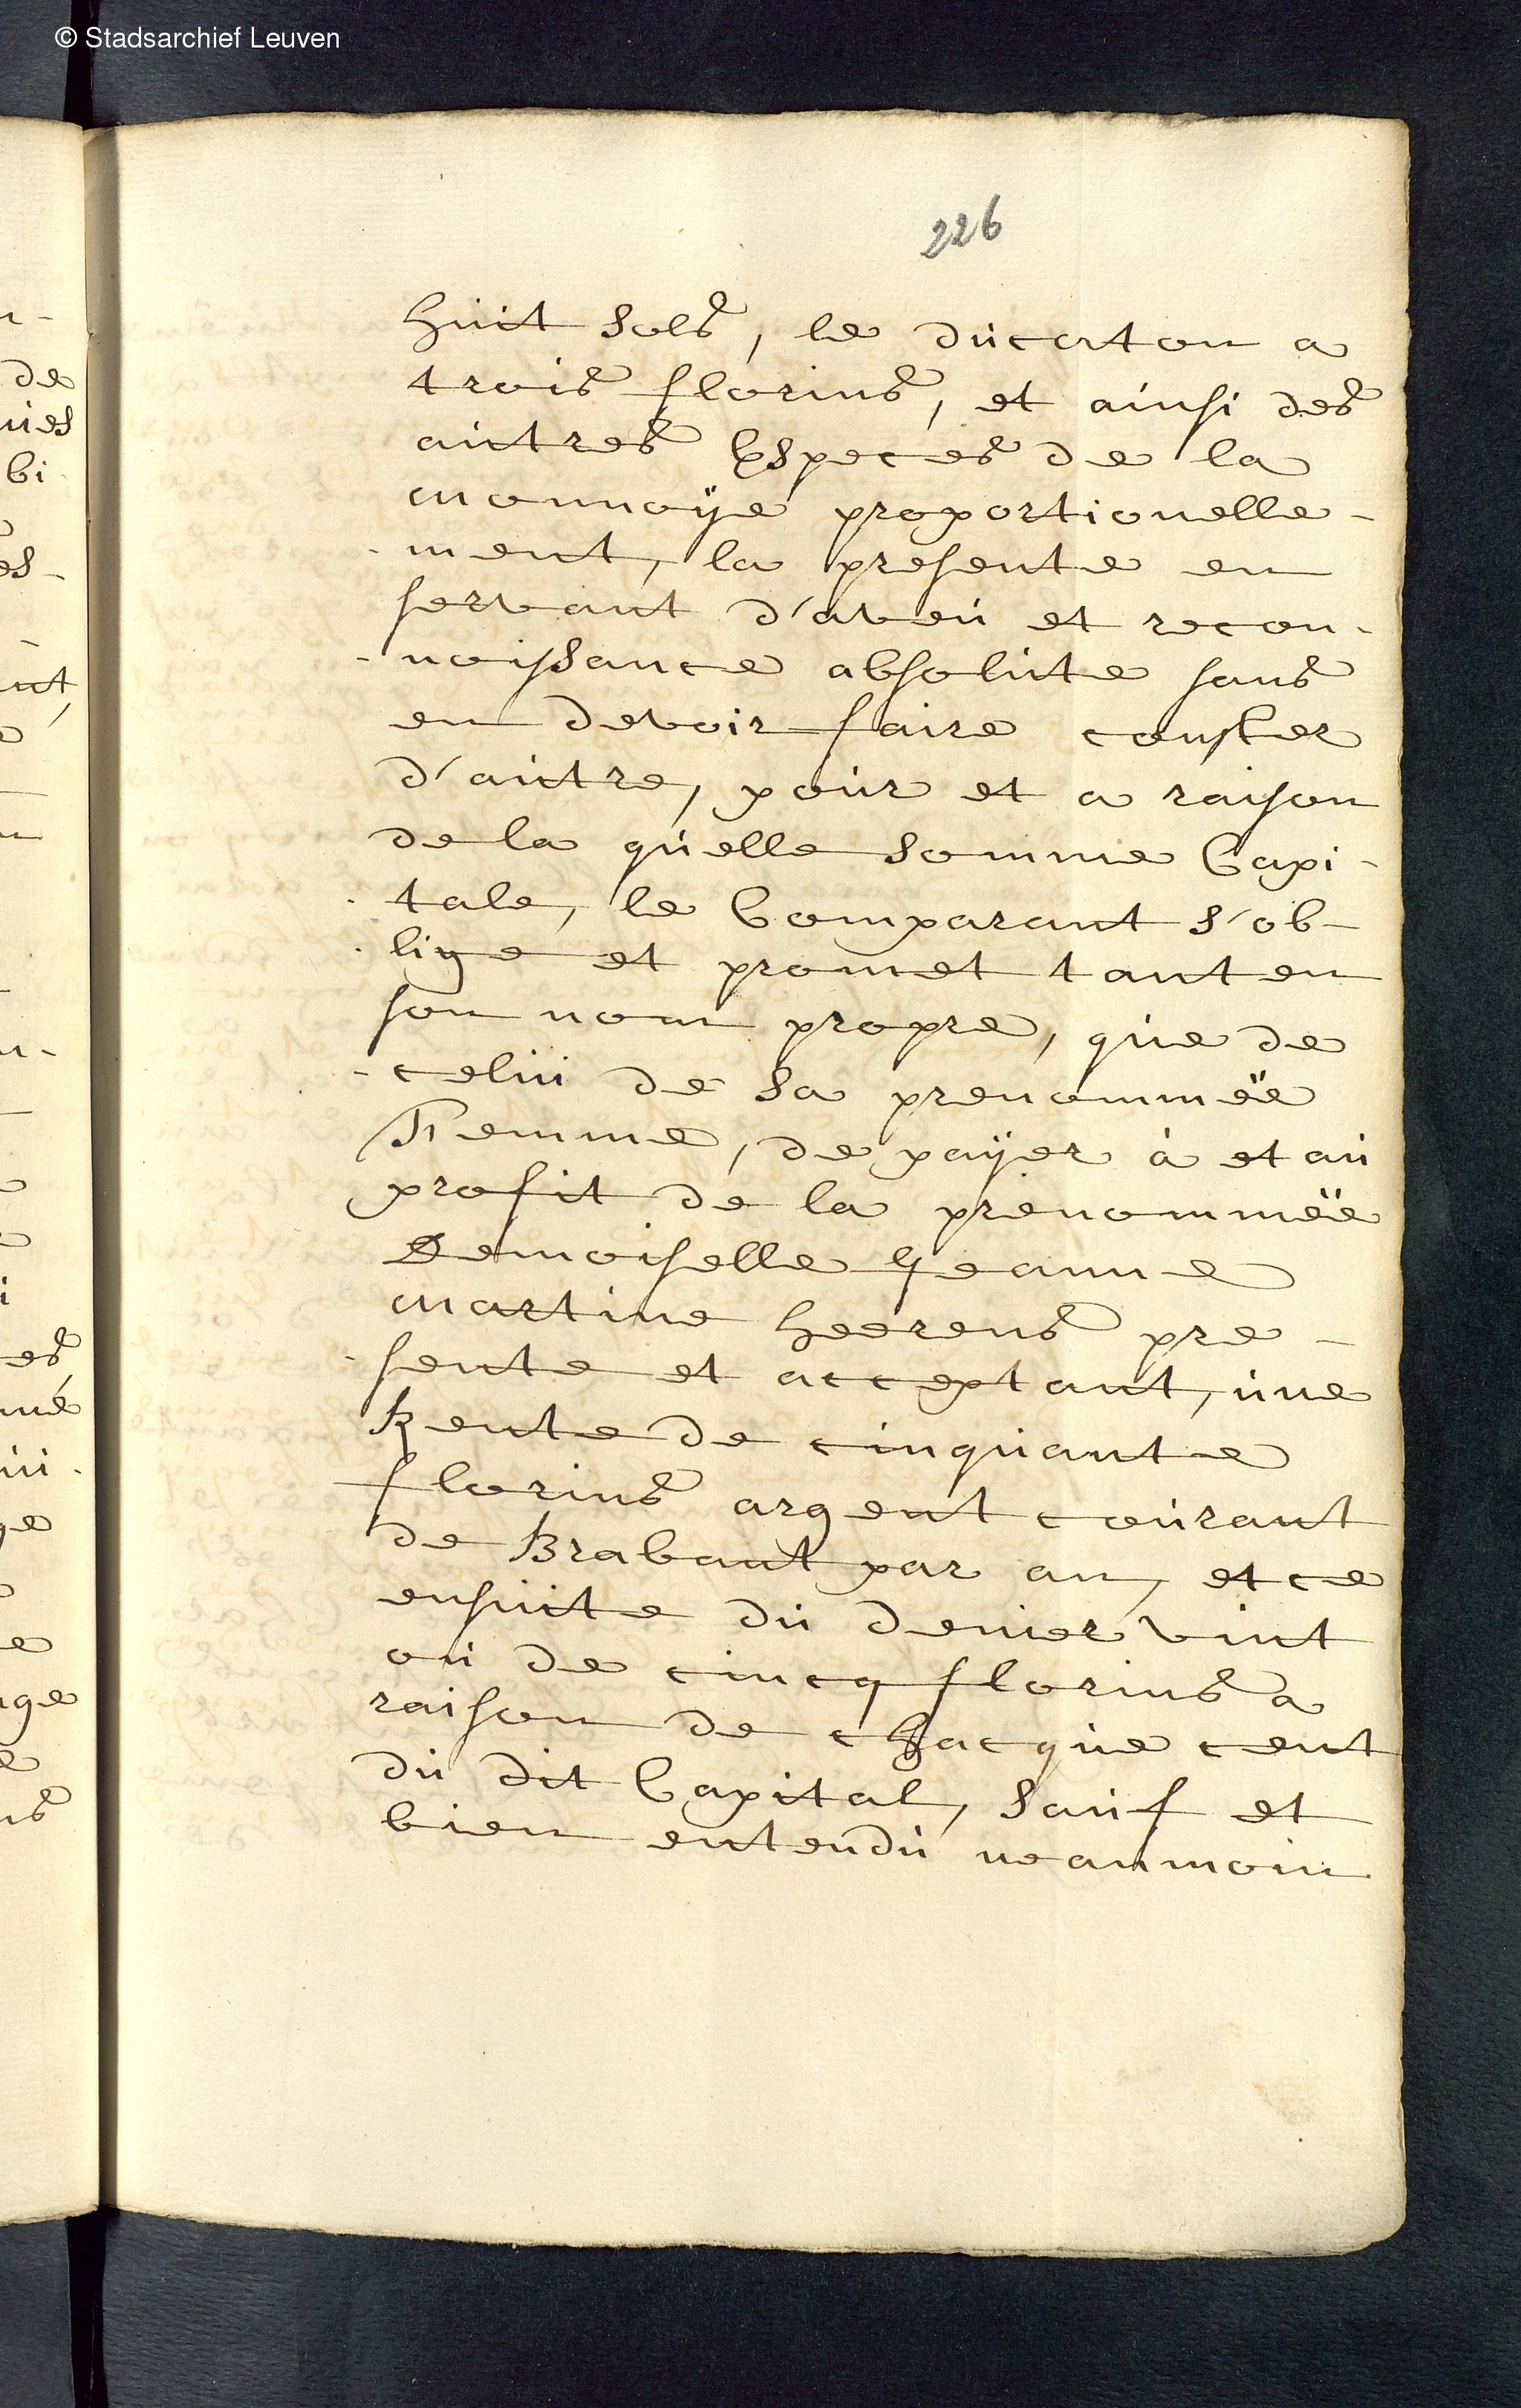 © Stadsarchief Leuven
226
huit sols, le ducaton a
trois florins, et ainsi des
autres Especes de la
monnoÿe proportionelle-
-ment, la presente en
servant d'aveu et recon-
-noissance absolute sans
en devoir faire conster
d'autre, pour et a raison
de la quelle somme Capi-
-tale, le Comparant s'ob-
-lige et promet tant en
son nom propre, que de
-celui de sa prenommëe
Femme, de paÿer à et au
profit de la prenommëe
Demoiselle Jeanne
martine heerens pre-
-sente et acceptant, une
Rente de cinquante
florins argent courant
de Brabant par an, et ce
ensuite du denier vint
ou de cincq florins a
raison de chacque cent
du dit Capital, sauf et
bien entendu neanmoin
de
ues
bi
es-
nt,
es
mé
ui-
ge
age
ns